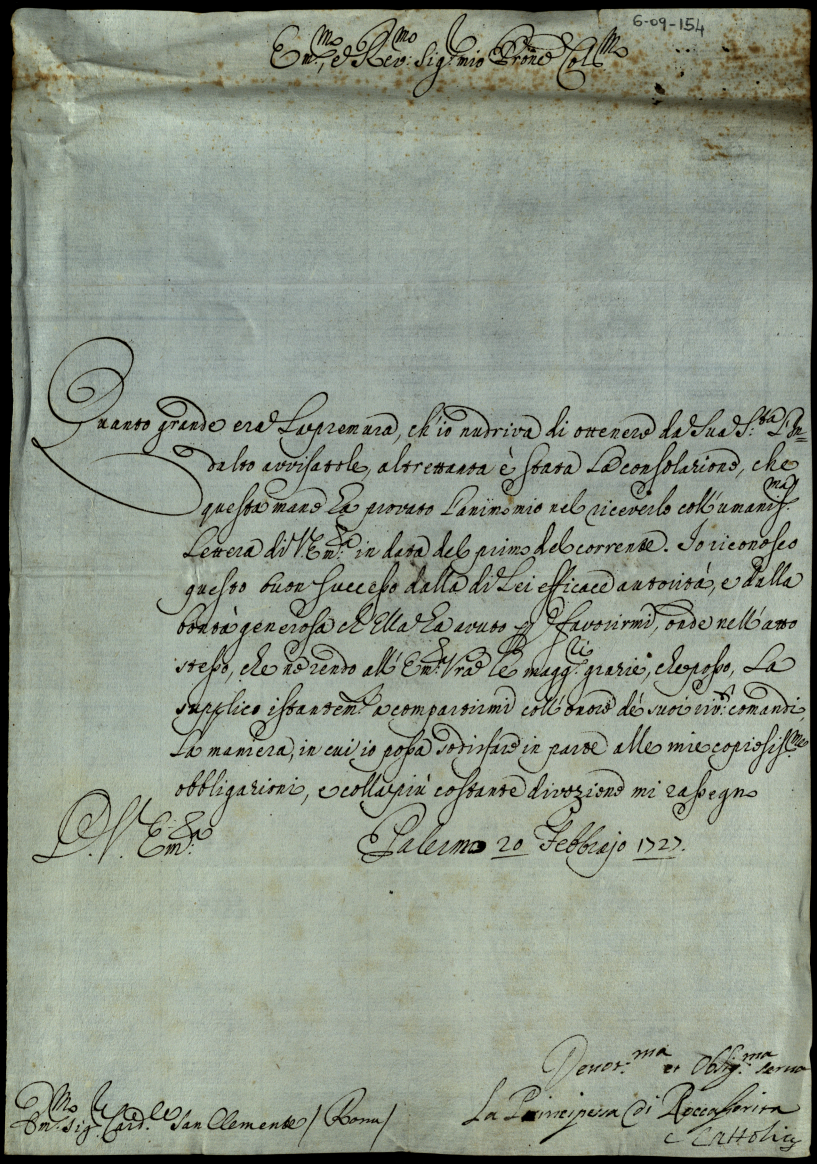 6-09-154
Em.mo, e Rev.mo Sig.r mio Pron.e Col.mo
Quanto grande era La premura, ch'io nudriva di ottenere da Sua S.tà L'In=
dulto avvisatole, altrettanta è stata La consolazione, che
questa mane ha provato L'animo mio nel riceverlo coll'umaniss.ma
Lettera di V. Em.za in data del primo del corrente. Io riconosco
questo buon successo dalla di Lei efficace autorità, e dalla
bontà generosa ch'Ella ha avuto p favorirmi, onde nell'atto
stesso, che ne rendo all'Em.za Vra le magg.ri grazie, che posso, La
supplico istantem.e a compartirmi coll'onore de' suoi riv.ti comandi,
La maniera, in cui io possa sodisfare in parte alle mie copiosiss.me
obbligazioni, e colla più costante divozione mi rassegno
D. V. Em.za
Palermo 20 Febbrajo 1727.
Devot.ma et Oblig.ma serva
La Principessa di Roccafiorita
e Cattolica
Em.mo Sig.r Card.le San Clemente / Roma /